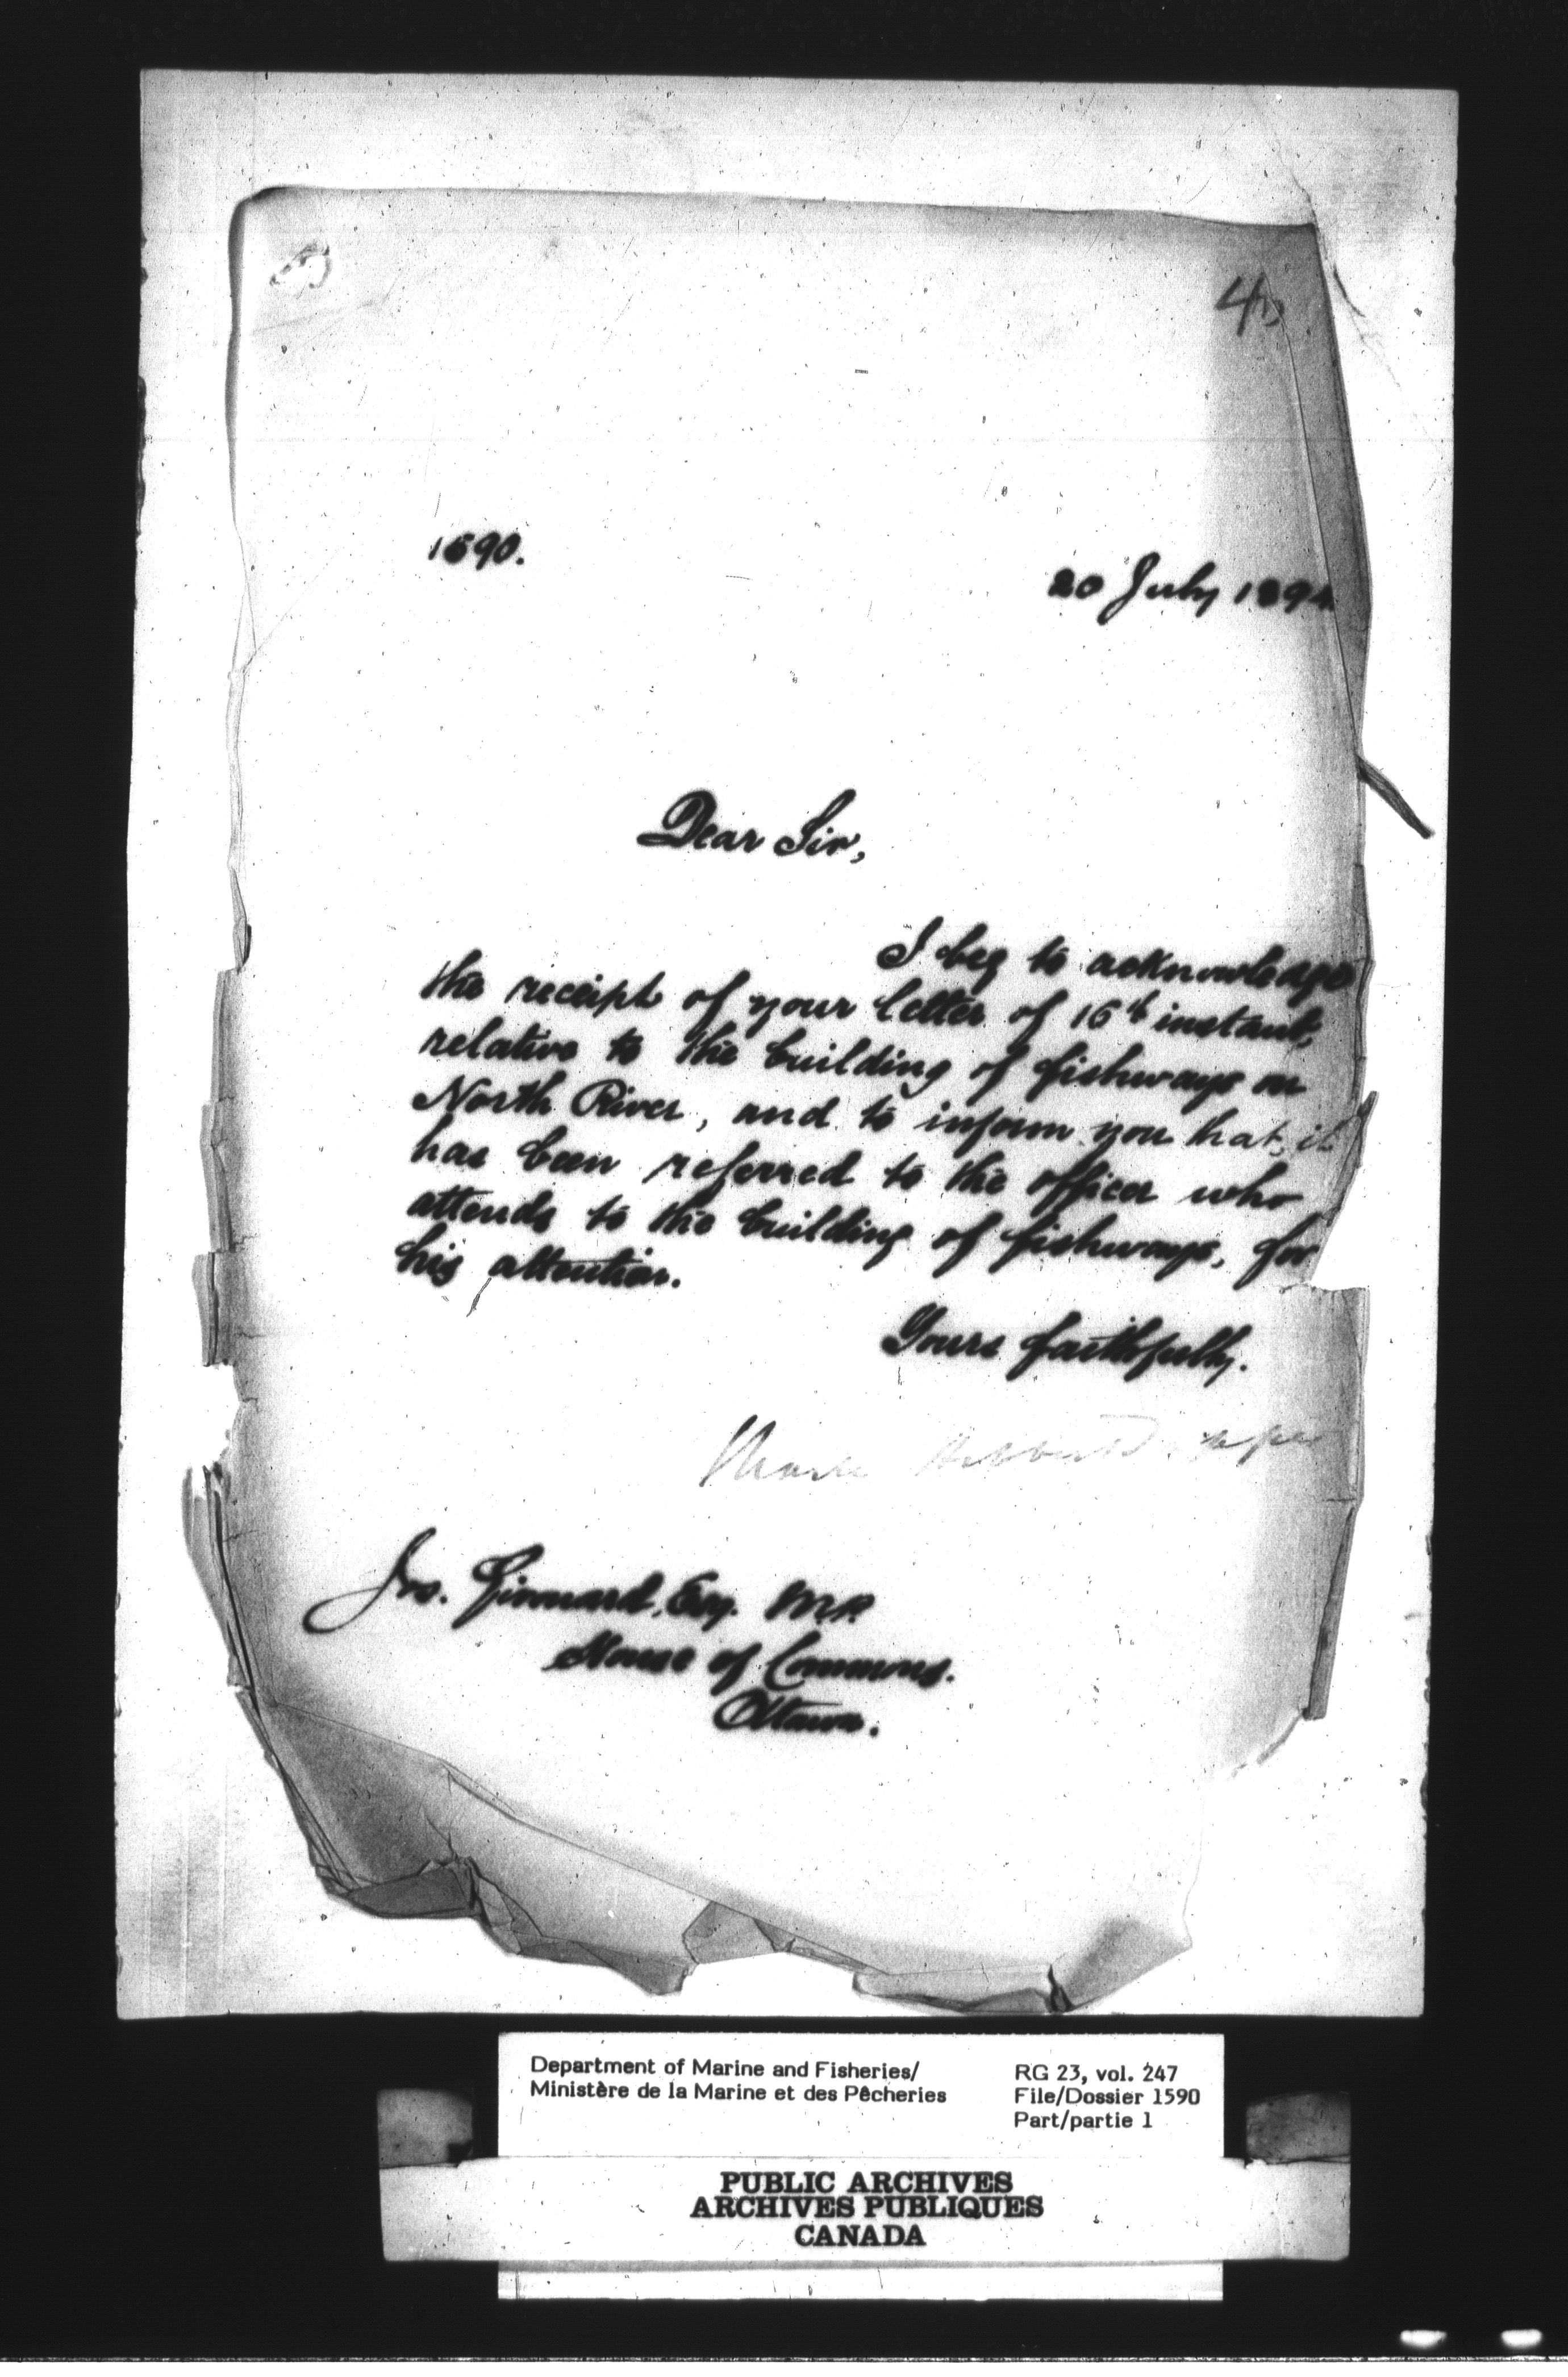 1590.
20 July 1894
Dear Sir,
I beg to acknowledge
the receipt of your letter of 16th instant,
relative to the building of fishways on
North River, and to inform you that, it
has been referred to the officer who
attends to the building of fishways, for
his attention.
Yours faithfully.
Charles Hibbert Tupper
Jos. Esq. M.P.
House of Commons.
Ottawa.
Department of Marine and Fisheries/
Ministère de la Marine et des Pêcheries
RG 23, vol. 247
File/Dossier 1590
Part/partie 1
PUBLIC ARCHIVES
ARCHIVES PUBLIQUES
CANADA